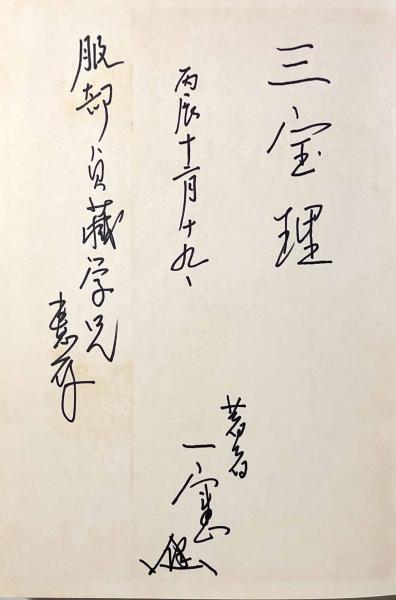 三宝理
丙辰十二月十九、
服部貞藏学兄
恵存
著者